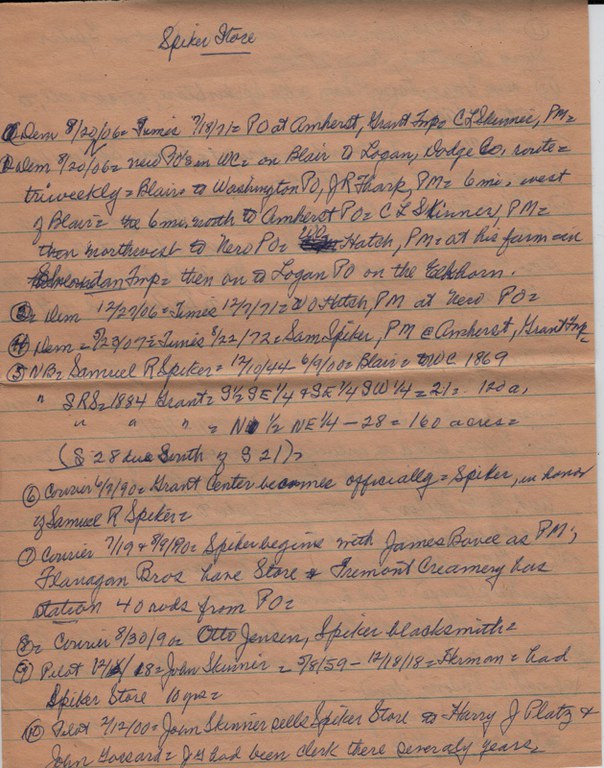 Spiker Store
① Dem 8/20/06 = Times 7/18/71 = PO at Amherst, Grant Tnp = C L Skinner, PM =
② Dem 8/20/06 = new PO's in WC = on Blair to Logan, Dodge Co, route =
triweekly = Blair to Washington PO, J R Tharp, PM = 6 mi. west
of Blair = the 6 mi. north to Amherst PO = C L Skinner, PM =
then northwest to Nero PO = WO Hatch, PM = at his farm = in
Sheridan Tmp = then on to Logan PO on the Elkhorn.
③ = Dem 12/27/06 = Times 12/7/71 = WO Hatch, PM at Nero PO =
④ Dem = 5/23/07 = Times 8/22/72 = Sam Spiker, PM @ Amherst, Grant Tnp =
⑤ NB = Samuel R Spiker = 12/10/44 - 6/9/00 = Blair = WC 1869
" SRS = 1884 Grant = S 1/2 SE 1/4 & SE 1/4 SW 1/4 = 21 = 120 a,
" " " = N 1/2 NE 1/4 - 28 = 160 acres =
(S 28 due South of S 21) =
⑥ Courier 6/7/90 = Grant Center becomes officially = Spiker, in honor
of Samuel R Spiker =
⑦ Courier 7/19 & 8/9/90 = Spiker begins with James as PM;
Flanagan Bros have Store & Fremont Creamery has
station 40 rods from PO =
⑧ = Courier 8/30/90 = Otto Jensen, Spiker blacksmith =
⑨ Pilot 12/ /18 = John Skinner = 5/8/59 - 12/18/18 = Herman = had
Spiker Store 10 yrs =
⑩ Pilot 2/12/00 = John Skinner sells Spiker Store to Harry J Platz &
John Gossard = J G had been clerk there severaly years,